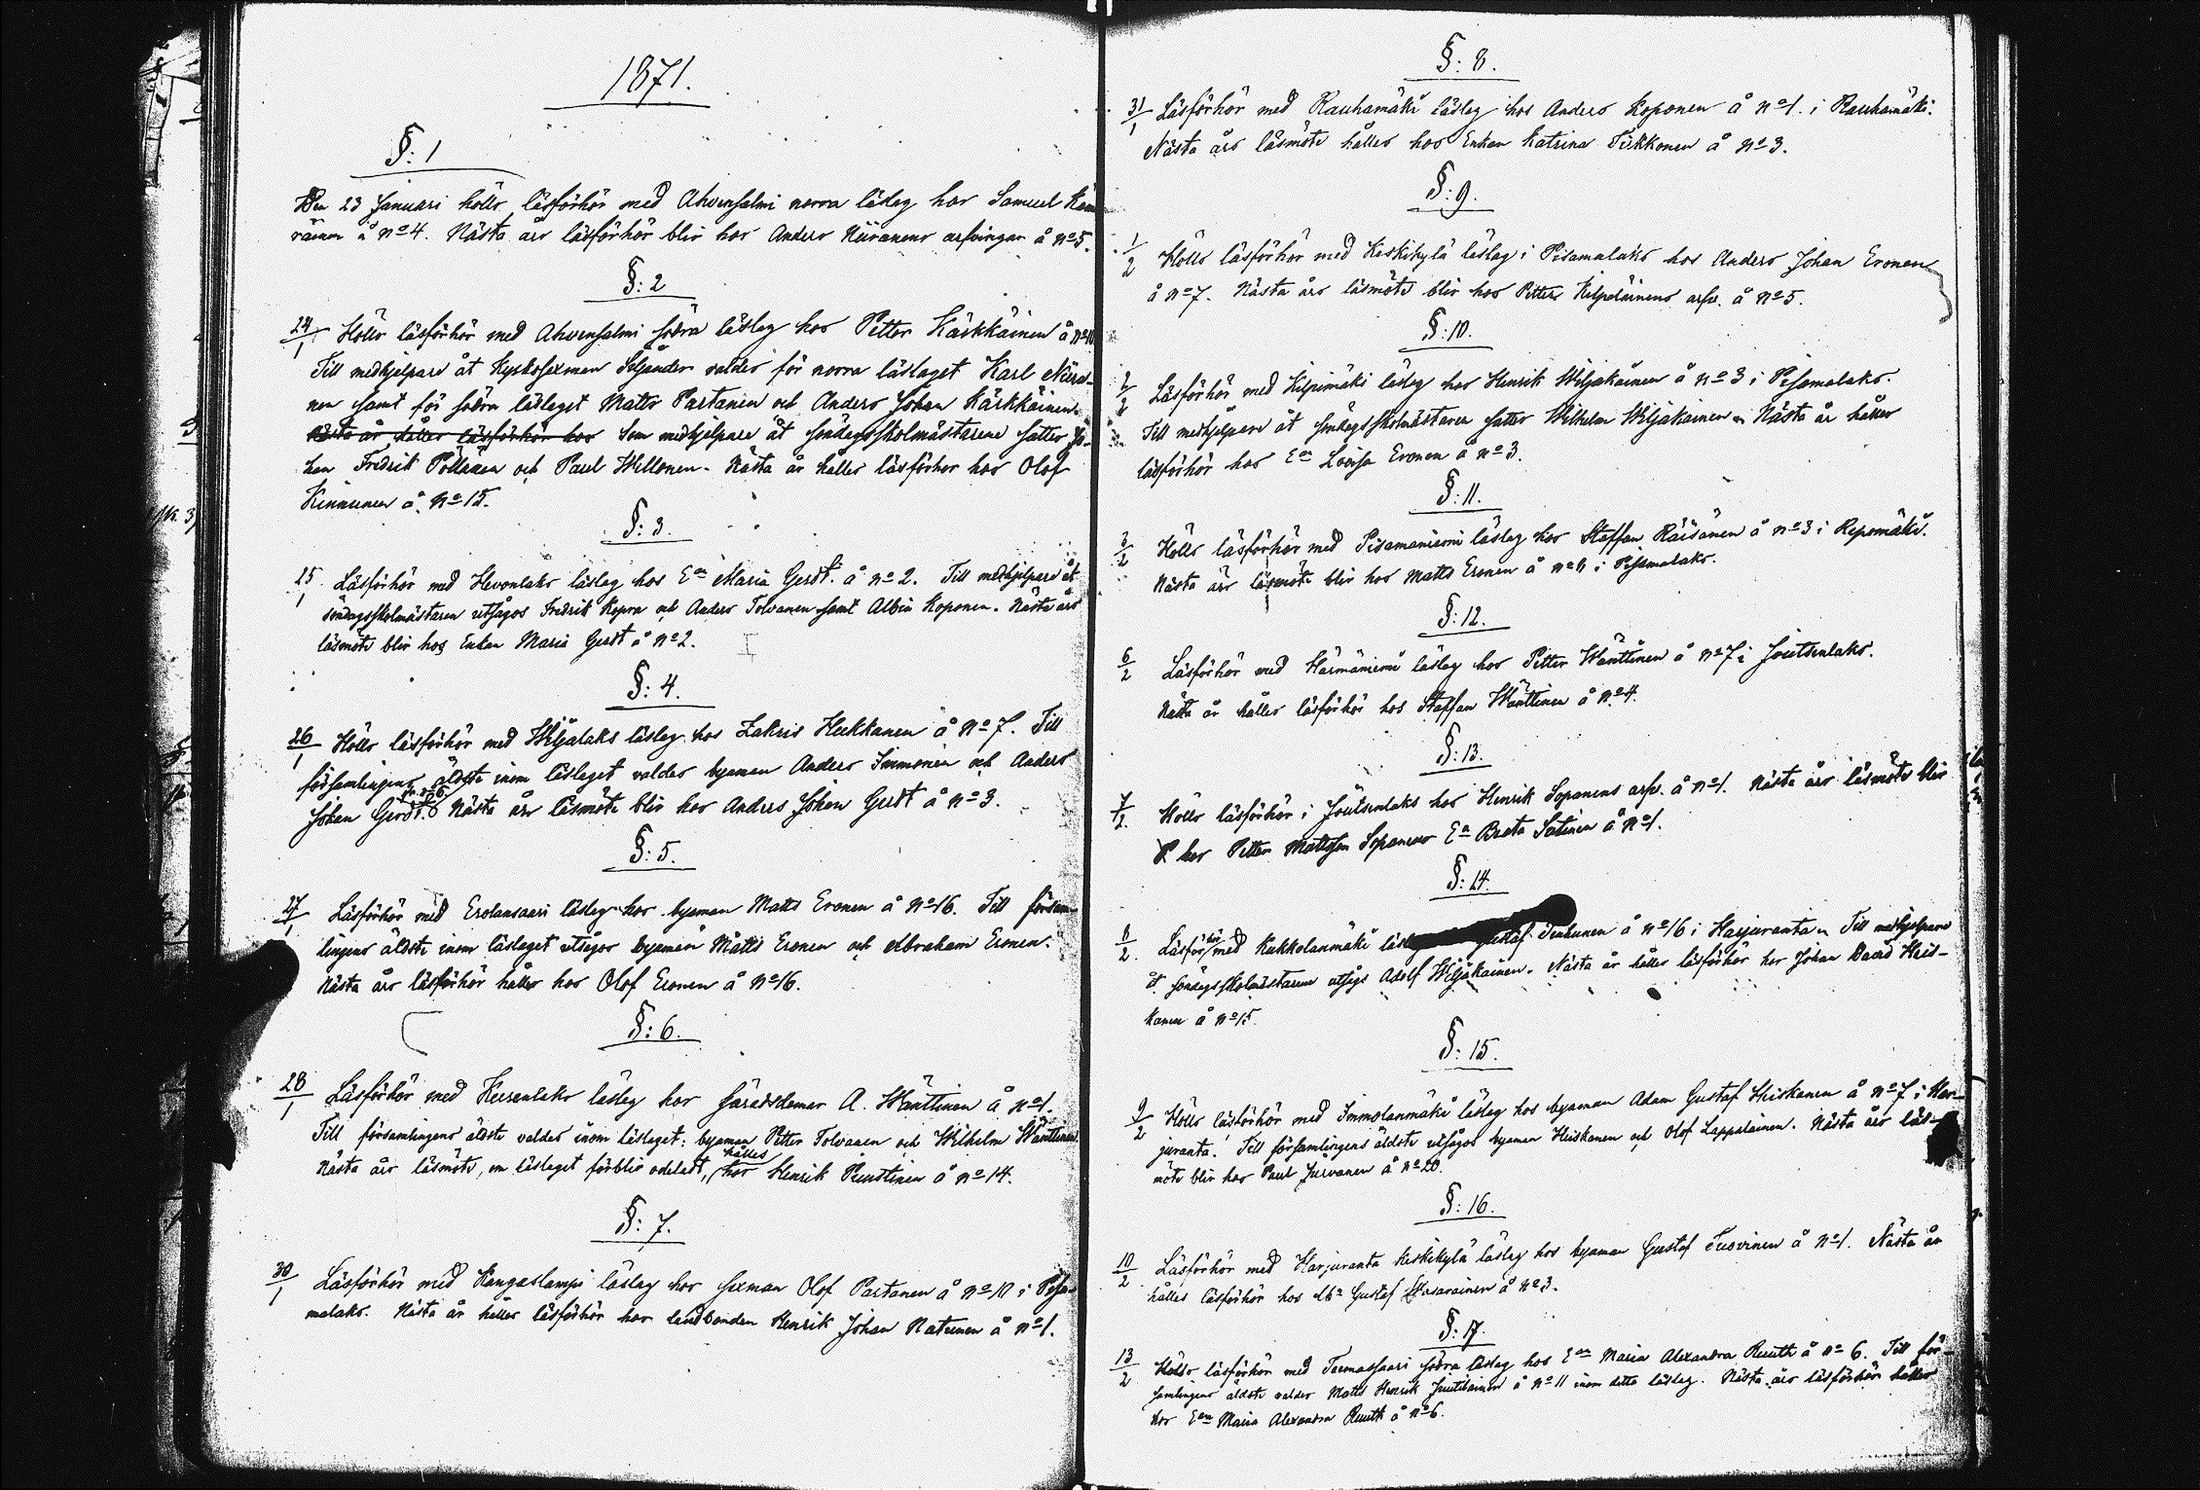 1871.
§: 1
Den 23 Januari hölls läsförhör med Ahvensalmi norra läslag hos Samuel
å No 4. Nästa års läsförhör blir hos Anders Niiranens arfvingar å No 5.
§: 2
24/1 Hölls läsförhör med Ahvensalmi södra läslag hos Petter Kärkkäinen å No 10
Till medhjelpare åt Kyrkosexman Siljander valdes för norra läslaget Karl Niira-
nen samt för södra läslaget Matts Partanen och Anders Johan Kärkkäinen.
Nästa år hålles läsförhör hos Som medhjelpare åt söndagsskolmästarene sattes Jo-
han Fredrik Pöllänen och Paul Willonen. Nästa år hålles läsförhör hos Olof
Kinnunen å No 15.
§: 3.
25/1 Läsförhör med Hevonlaks läslag hos Ean Maria Gerdt. å No 2. Till medhjelpare åt
söndagsskolmästaren utsågos Fredrik Repo och Anders Tolvanen samt Albin Koponen. Nästa års
läsmöte blir hos Enkan Maria Gerdt å No 2.
§: 4.
26/1 Hölls läsförhör med Wiljalaks läslag hos Zakris Heikkanen å No 7. Till
församlingens äldste inom läslaget valdes byeman Anders Immonen och Anders
Johan Gerdt. Nästa års läsmöte blir hos Anders Johan Gerdt å No 3.
§: 5.
27/1 Läsförhör med Erolansaari läslag hos byeman Matts Eronen å No 16. Till försam-
lingens äldste inom läslaget utsågos byemän Matts Eronen och Abraham Eronen.
Nästa års läsförhör hålles hos Olof Eronen å No 16.
§: 6.
28/1 Läsförhör med Keisenlaks läslag hos häradsdomar A. Wänttinen å No 1.
Till församlingens äldste valdes inom läslaget: byeman Petter Tolvanen och Wilhelm Wänttinen.
Nästa års läsmöte, om läslaget förblir odeladt, hålles hos Henrik Puustinen å No 14.
§: 7.
30/1 Läsförhör med Kangaslampi läslag hos sexman Olof Partanen å No 10 i Pisa-
malaks. Nästa år hålles läsförhör hos landbonden Henrik Johan Natunen å No 1.
§: 8.
31/1 Läsförhör med Rauhamäki läslag hos Anders Koponen å No 1. i Rauhamäki.
Nästa års läsmöte hålles hos Enkan Katrina Tikkonen å No 3.
§: 9.
1/2 Hölls läsförhör med Keskikylä läslag i Pisamalaks hos Anders Johan Eronen
å No 7. Nästa års läsmöte blir hos Petter Kilpeläinens arfv. å No 5.
§: 10.
2/2 Läsförhör med Kilpimäki läslag hos Henrik Wiljakainen å No 3 i Pisamalaks.
Till medhjelpare åt söndagsskolmästaren sattes Wilhelm Wiljakainen. Nästa år hålles
läsförhör hos Ean Lovisa Eronen å No 3.
§: 11.
3/2 Hölls läsförhör med Pisamaniemi läslag hos Staffan Räisänen å No 3 i Repomäki.
Nästa års läsmöte blir hos Matts Eronen å No 11 i Pisamalaks.
§: 12.
6/2 Läsförhör med Härmäniemi läslag hos Petter Wänttinen å No 7 i Joutsenlaks.
Nästa år hålles läsförhör hos Staffan Wänttinen å No 4.
§: 13.
7/2 Hölls läsförhör i Joutsenlaks hos Henrik Sopanens arfv. å No 1. Nästa års läsmöte blir
hos Petter Mattsson Sopanens Ea Beata Satinen å No 1.
§: 14.
8/2 Läsförhör med Kukkolanmäki Gustaf å No 16 i Harjuranta. Till medhjelpare
åt söndagsskolmästaren utsågs Adolf Wiljakainen. Nästa år hålles läsförhör hos Johan David Heis-
kanen å No 15.
§: 15.
9/2 Hölls läsförhör med Immolanmäki läslag hos byeman Adam Gustaf Heiskanen å No 7 i Har-
juranta. Till församlingens äldste utsågos byeman Heiskanen och Olof Lappalainen. Nästa års läs-
möte blir hos Paul Jurvanen å No 20.
§: 16.
10/2 Läsförhör med Harjuranta Keskikylä läslag hos byeman Gustaf Tusvinen å No 1. Nästa år
hålles läsförhör hos Gustaf å No 3.
§: 17.
13/2 Hölls läsförhör med Tuemassaari södra läslag hos Ean Maria Alexandra Ruuth å No 6. Till för-
samlingens äldste valdes Matts Henrik Juutilainen å No 11 inom detta läslag. Nästa års läsförhör hålles
hos Ean Maria Alexandra Ruuth å No 6.